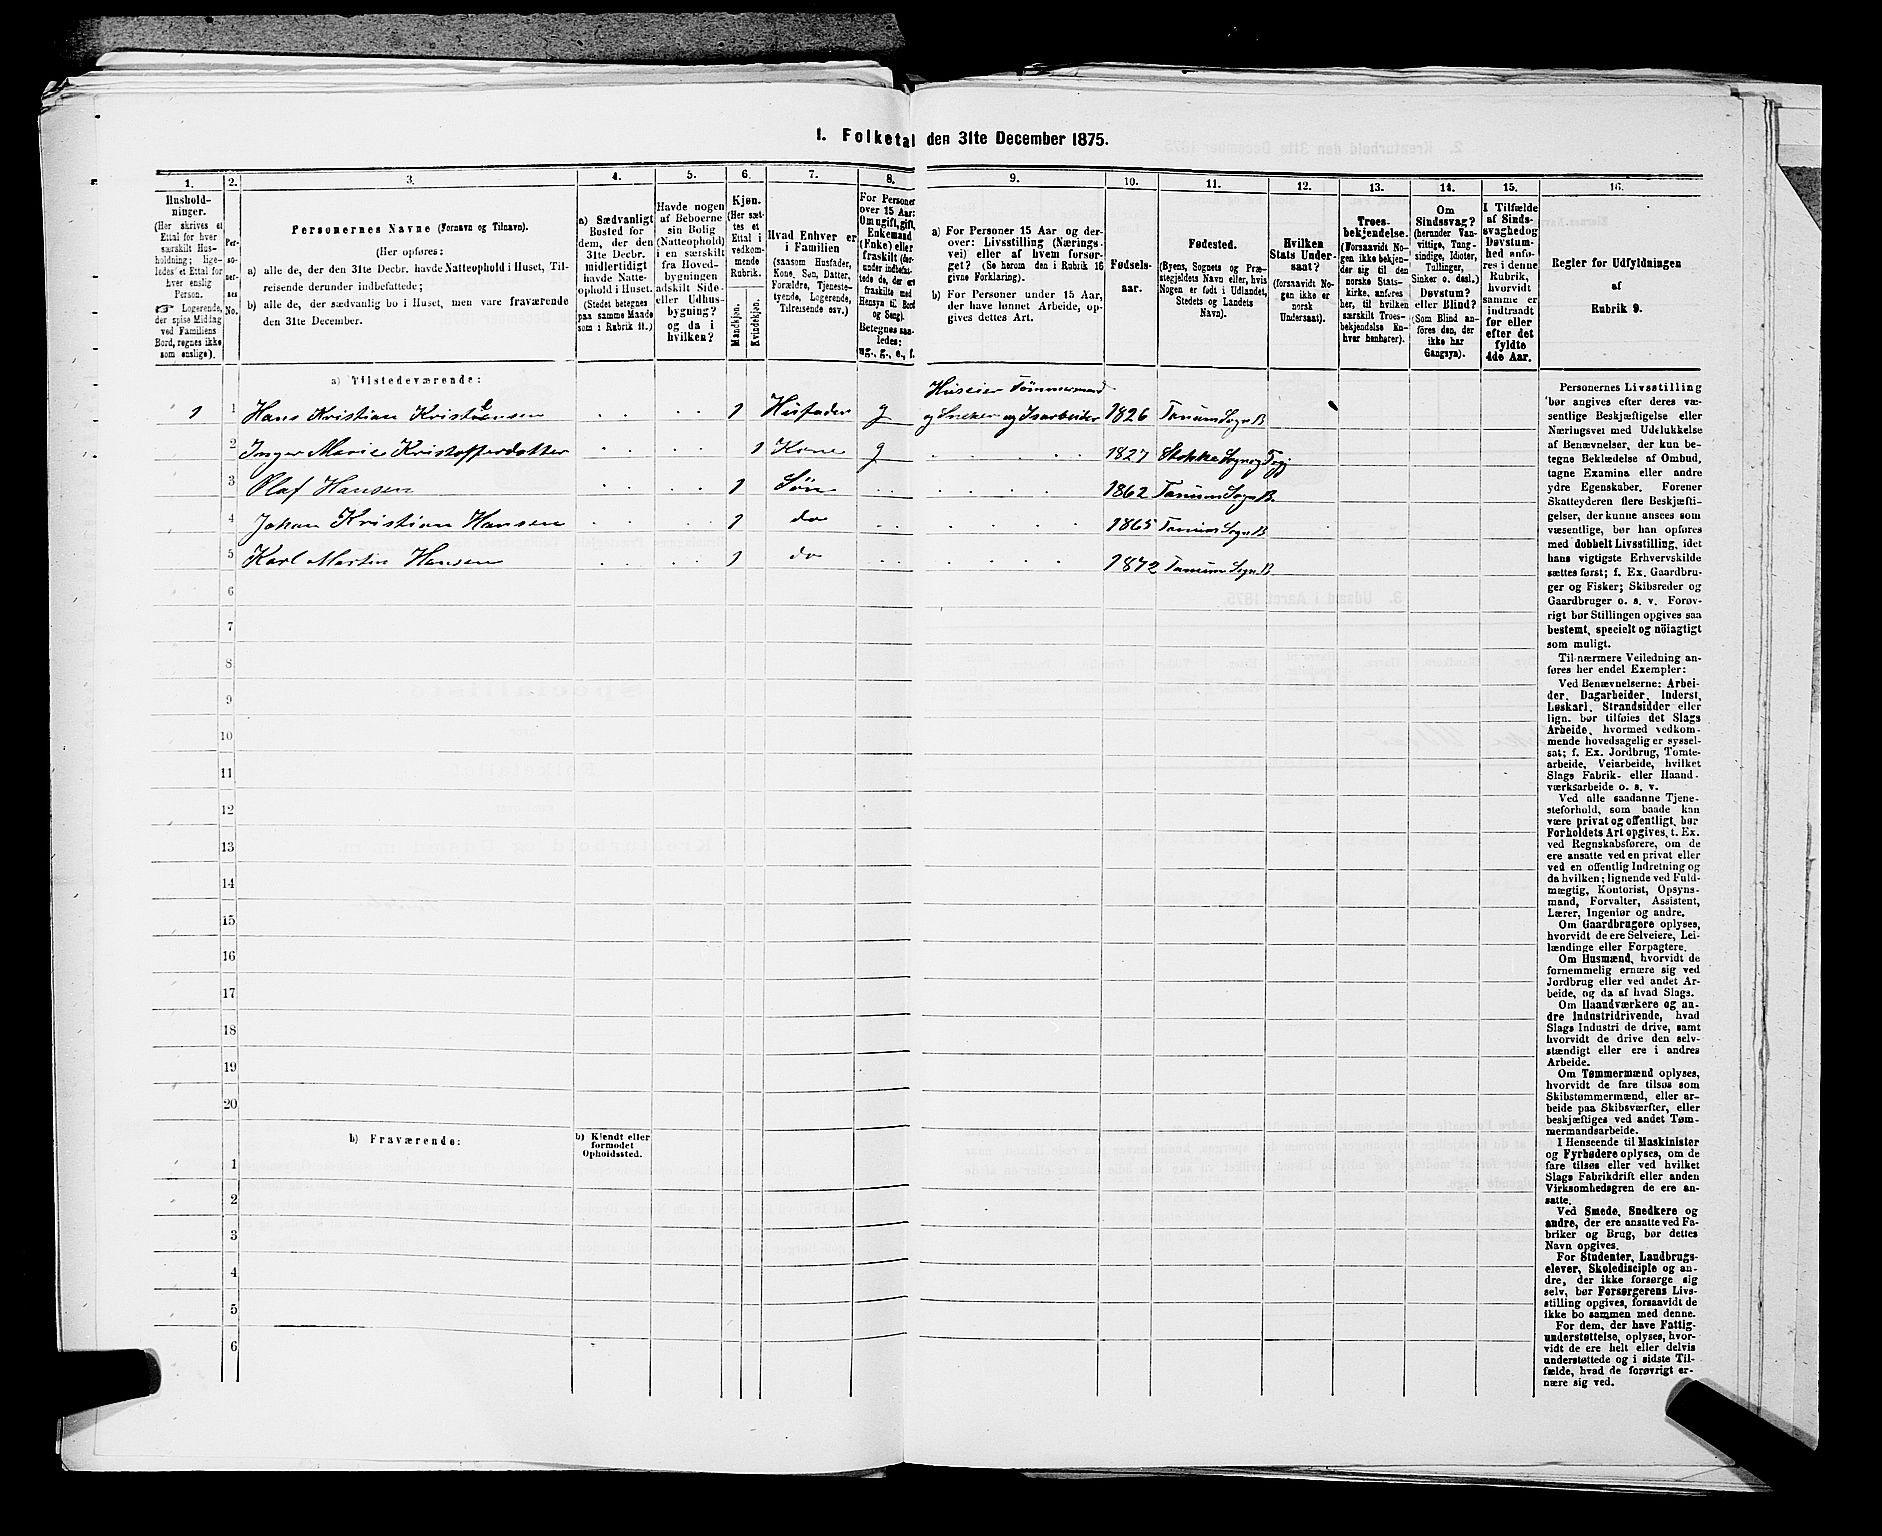 1. Folketal den 31te December 1875.
1.
2.
3.
4.
5.
6.
7.
8.
9.
10.
11.
12.
13.
14.
15.
16.
Hushold-
ninger.
(Her skrives et
Ettal for hver
særskilt Hus-
holdning; lige-
ledes et Ettal for
hver enslig
Person.
☞ Logerende,
der spise Middag
ved Familiens
Bord, regnes ikke
som enslige).
Per-
so-
ner-
nes
No.
Personernes Navne (Fornavn og Tilnavn).
(Her opføres:
a) alle de, der den 31te Decbr. havde Natteophold i Huset, Til-
reisende derunder indbefattede;
b) alle de, der sædvanlig bo i Huset, men vare fraværende
den 31te December.
a) Sædvanligt
Bosted for
dem, der den
31te Decbr.
midlertidigt
havde Natte-
ophold i Huset.
(Stedet betegnes
paa samme Maade
som i Rubrik 11.)
Havde nogen
af Beboerne
sin Bolig
(Natteophold)
i en særskilt
fra Hoved-
bygningen
adskilt Side-
eller Udhus-
bygning?
og da i
hvilken?
Kjøn.
(Her sæt-
tes et
Ettal i
vedkom-
mende
Rubrik.
Mandkjøn.
Kvindekjøn.
Hvad Enhver er
i Familien
(saasom Husfader,
Kone, Søn, Datter,
Forældre, Tjeneste-
tyende, Logerende,
Tilreisende osv.)
For Personer
over 15 Aar:
Om ugift, gift,
Enkemand
(Enke) eller
fraskilt (her-
under indbefat-
tede de, der ere
fraskilte med
Hensyn til Bord
og Seng).
Betegnes saa-
ledes:
ug., g., e., f.
a) For Personer 15 Aar og der-
over: Livsstilling (Nærings-
vei) eller af hvem forsør-
get? (Se herom den i Rubrik 16
givne Forklaring).
b) For Personer under 15 Aar,
der have lønnet Arbeide, op-
gives dettes Art.
Fødsels-
aar.
Fødested.
(Byens, Sognets og Præ-
stegjeldets Navn eller, hvis
Nogen er født i Udlandet,
Stedets og Landets
Navn).
Hvilken
Stats Under-
saat?
(forsaavidt No-
gen ikke er
norsk
Undersaat).
Troes-
bekjendelse.
(Forsaavidt No-
gen ikke bekjen-
der sig til den
norske Stats-
kirke, anføres
her, til hvilken
særskilt Troes-
bekjendelse En-
hver henhører).
Om
Sindssvag?
(herunder Van-
vittige, Tung-
sindige, Idioter,
Tullinger,
Sinker o. desl.)
Døvstum?
eller Blind?
(Som Blind an-
føres den, der
ikke har
Gangsyn).
I Tilfælde
af Sinds-
svaghed og
Døvstum-
hed anfø-
res i denne
Rubrik,
hvorvidt
samme er
indtraadt
før eller
efter det
fyldte
4de Aar.
Regler for Udfyldningen
af
Rubrik 9.
a) Tilstedeværende:
Huseier Tømmermand
1 1 Hans Kristian Kristiensen 1 Husfader g og Snekker og Isarbeider 1826 Tanum Sogn B
2 Inger Marie Kristofferdatter 1 Kone g 1827 Stokke Sogn og
3 Olaf Hansen 1 Søn 1862 Tanum Sogn B
4 Johan Kristian Hansen 1 do 1865 Tanum Sogn B
5 Karl Martin Hansen 1 do 1872 Tanum Sogn B
6
7
8
9
10
11
12
13
14
15
16
17
18
19
20
b) Fraværende:
b) Kjendt eller
formodet
Opholdssted.
1
2
3
4
5
6
Personernes Livsstilling
bør angives efter deres væ-
sentlige Beskjæftigelse eller
Næringsvei med Udelukkelse
af Benævnelser, der kun be-
tegne Beklædelse af Ombud,
tagne Examina eller andre
ydre Egenskaber. Forener
Skatteyderen flere Beskjæfti-
gelser, der kunne ansees som
væsentlige, bør han opføres
med dobbelt Livsstilling, idet
hans vigtigste Erhvervskilde
sættes først; f. Ex. Gaardbru-
ger og Fisker; Skibsreder og
Gaardbruger o. s. v. Forøv-
rigt bør Stillingen opgives saa
bestemt, specielt og nöiagtigt
som muligt.
Til nærmere Veiledning an-
føres her endel Exempler:
Ved Benævnelserne: Arbei-
der, Dagarbeider, Inderst,
Løskarl, Strandsidder eller
lign. bør tilføies det Slags
Arbeide, hvormed vedkom-
mende hovedsagelig er syssel-
sat; f. Ex. Jordbrug, Tomte-
arbeide, Veiarbeide, hvilket
Slags Fabrik- eller Haand-
værksarbeide o. s. v.
Ved alle saadanne Tjene-
steforhold, som baade kan
være privat og offentligt, bør
Forholdets Art opgives, t. Ex.
ved Regnskabsførere, om de
ere ansatte ved en privat eller
ved en offentlig Indretning og
da hvilken; lignende ved Fuld-
mægtig, Kontorist, Opsyns-
mand, Forvalter, Assistent,
Lærer, Ingeniør og andre.
Om Gaardbrugere oplyses,
hvorvidt de ere Selveiere, Lei-
lændinge eller Forpagtere.
Om Husmænd, hvorvidt de
fornemmelig ernære sig ved
Jordbrug eller ved andet Ar-
beide, og da af hvad Slags.
Om Haandværkere og an-
dre Industridrivende, hvad
Slags Industri de drive, samt
hvorvidt de drive den selv-
stændigt eller ere i andres
Arbeide.
Om Tømmermænd oplyses,
hvorvidt de fare tilsøs som
Skibstømmermænd, eller ar-
beide paa Skibsværfter, eller
beskjæftiges ved andet Tøm-
mermandsarbeide.
I Henseende til Maskinister
og Fyrbødere oplyses, om de
fare tilsøs eller ved hvilket
Slags Fabrikdrift eller anden
Virksomhedsgren de ere an-
satte.
Ved Smede, Snedkere og
andre, der ere ansatte ved Fa-
briker og Brug, bør dettes
Navn opgives.
For Studenter, Landbrugs-
elever, Skoledisciple og an-
dre, der ikke forsørge sig
selv, bør Forsørgerens Livs-
stilling opgives, forsaavidt de
ikke bo sammen med denne.
For dem, der have Fattig-
understøttelse, oplyses, hvor-
vidt de ere helt eller delvis
understøttede og i sidste Til-
fælde, hvad de forøvrigt er-
nære sig ved.